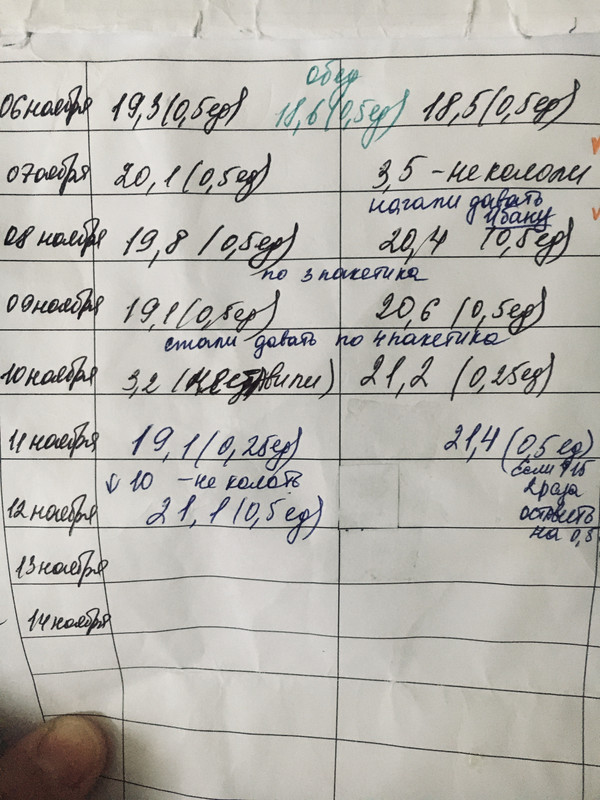 обед
06 ноября 19,3 (0,5ед) 18,6 (0,5ед) 18,5 (0,5ед)
07 ноября 20,1 (0,5ед) 3,5 - не кололи
начали давать
Ибану
08 ноября 19,8 (0,5ед) 20,4 (0,5ед)
по 3 пакетика
09 ноября 19,1 (0,5ед) 20,6 (0,5ед)
стали давать по 4 пакетика
10 ноября 3,2 21,2 (0,25ед)
11 ноября 19,1 (0,25ед) 21,4 (0,5 ед)
↓ 10 - не колоть если ↑15
2 раза
12 ноября 21,1 (0,5 ед) оставить
на 0,5
13 ноября
14 ноября